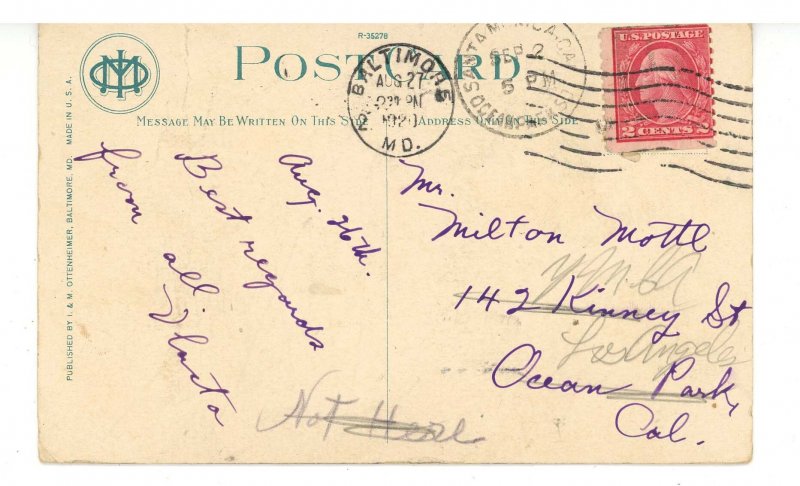 R-35278
POST CARD
MESSAGE MAY BE WRITTEN ON THIS SIDE
ADDRESS ONLY ON THIS SIDE
BALTIMORE
AUG 27
PM
MD.
SANTA MONICA, CAL
SEP 2
5 PM
U.S. POSTAGE
2 CENTS 2
PUBLISHED BY I. & M. OTTENHEIMER, BALTIMORE, MD. MADE IN U.S.A.
Aug. 26th.
Best regards
from all.
Mr.
Milton Motte
142 Kinney St
Los Angeles
Ocean Park,
Cal.
Not Here